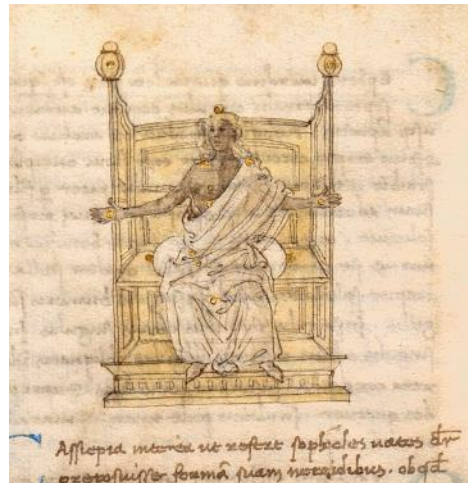 Assiepia interea ut refert sophocles uates dr̄
preposuisse formā suam nereidibus. ob qđ